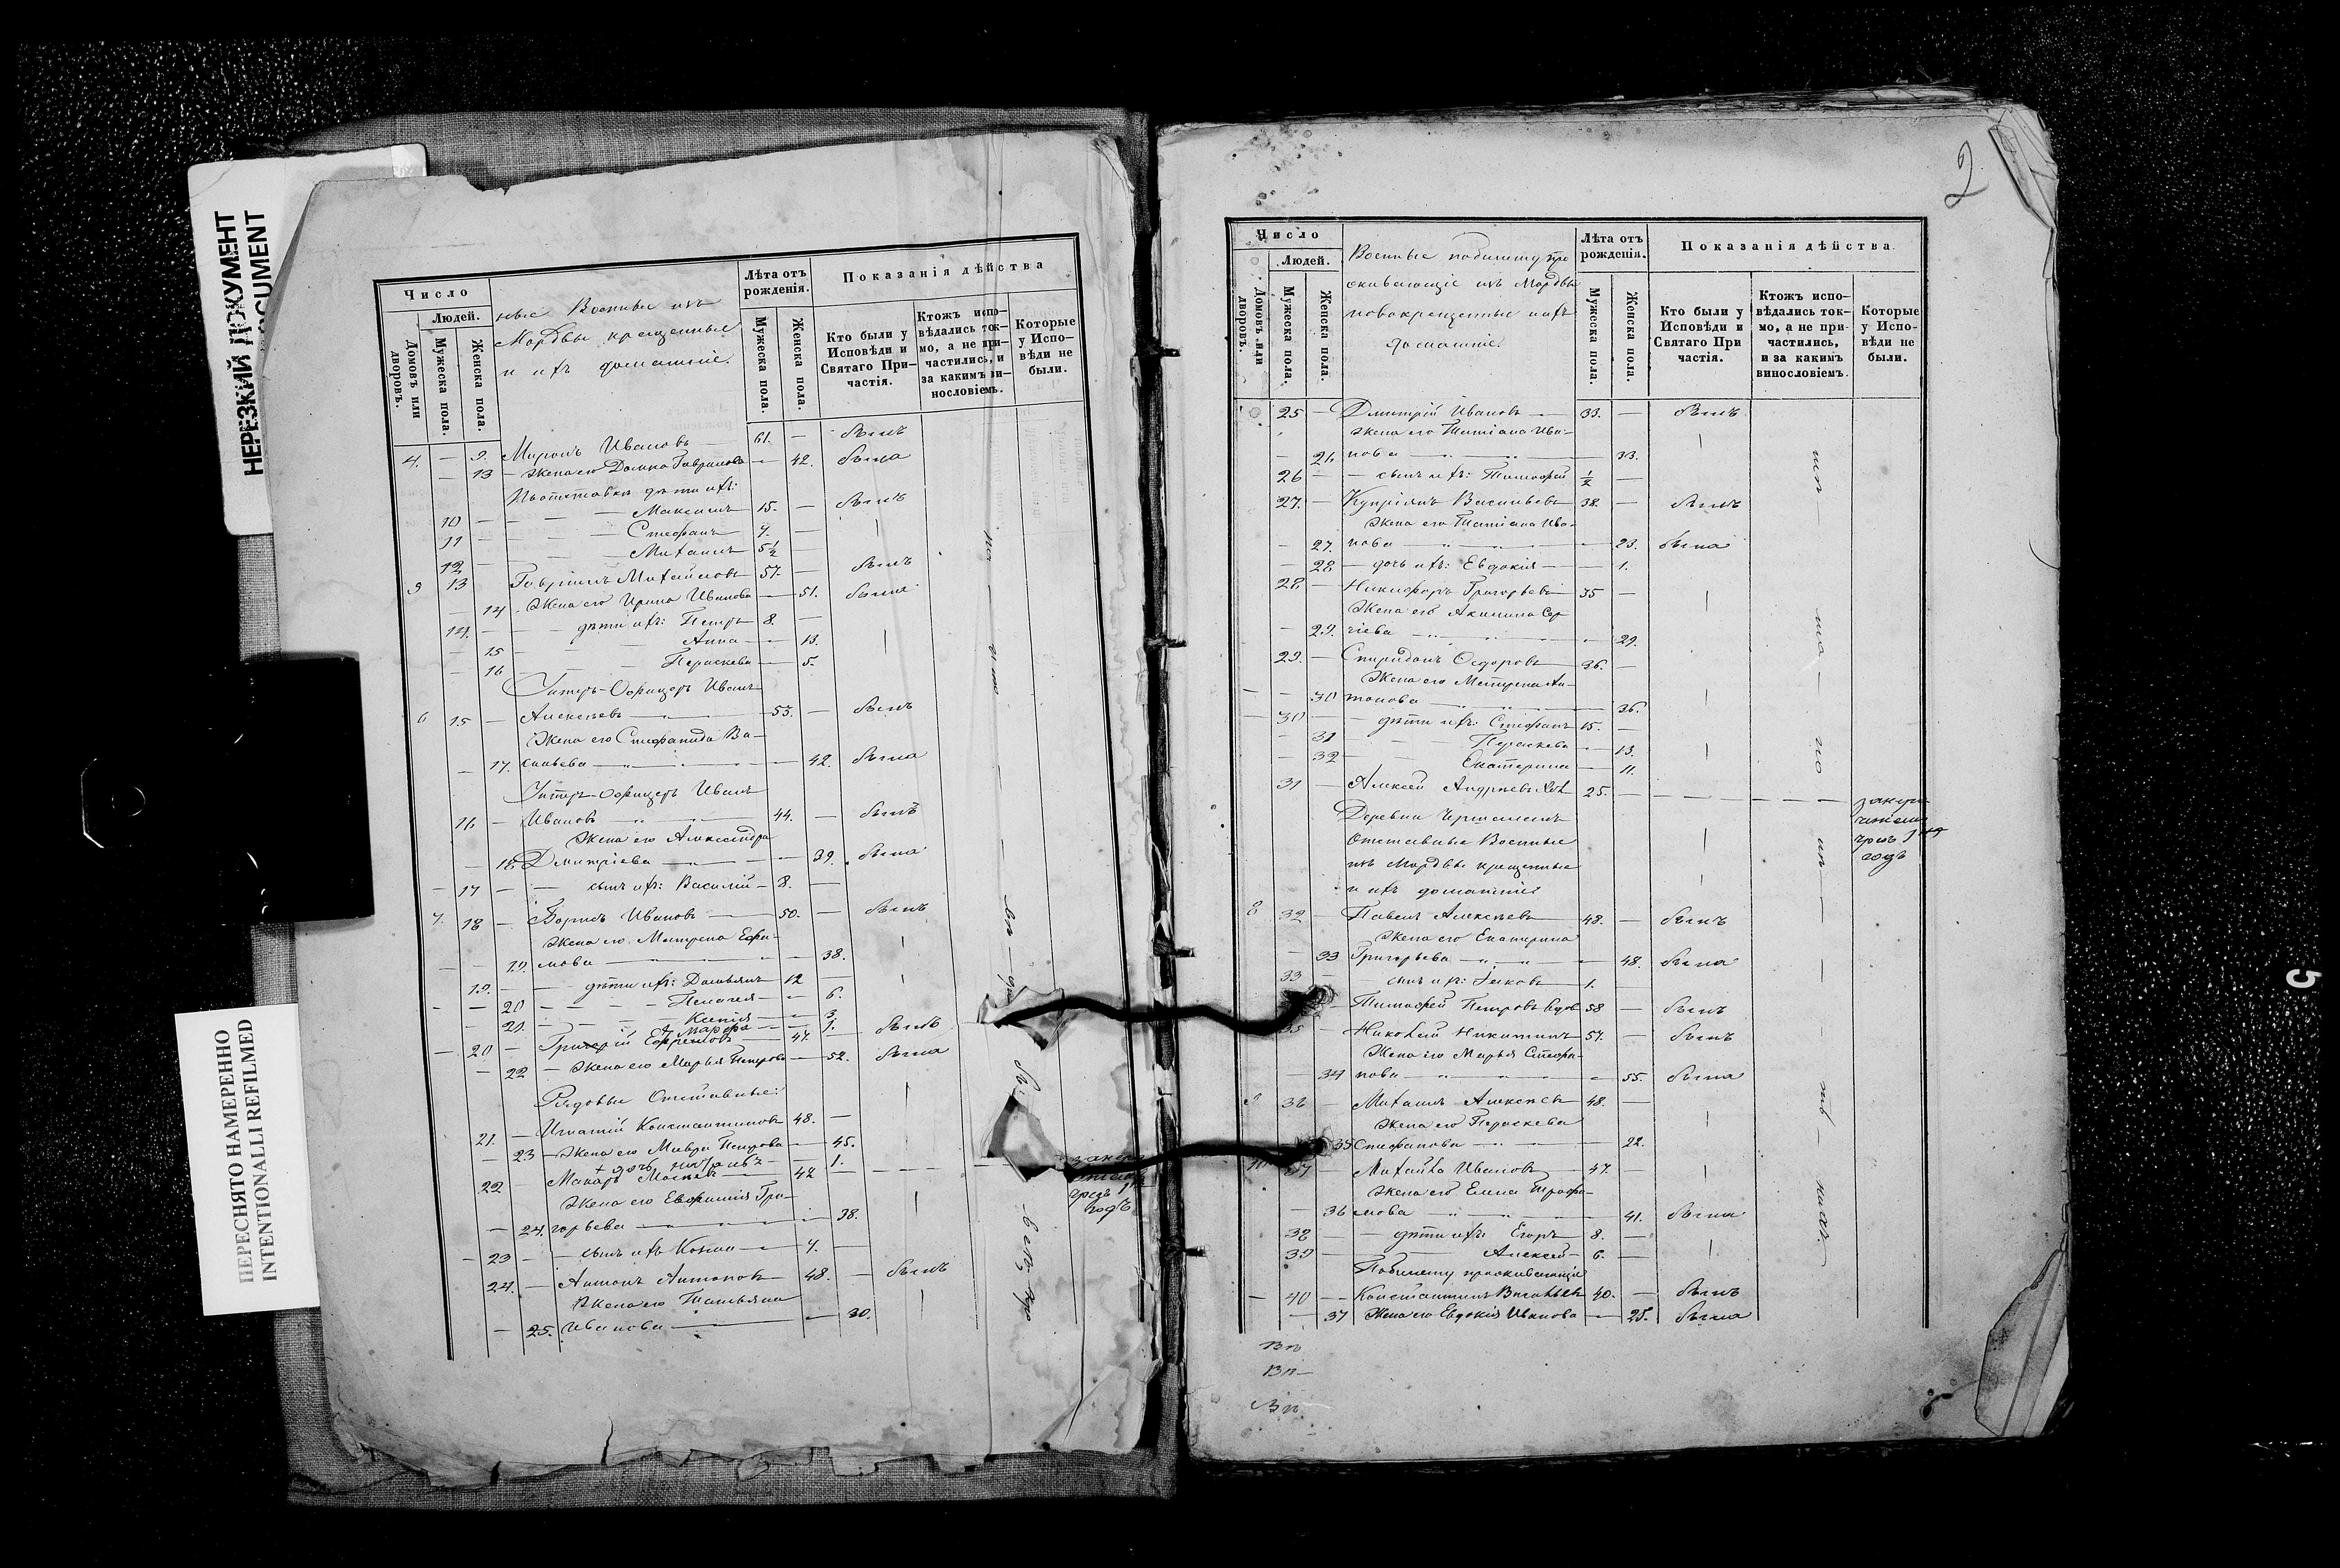 НЕРЕЗКИЙ ДОКУМЕНТ
DOCUMENT
ПЕРЕСНЯТО НАМЕРЕННО
INTENTIONALLI REFILMED
Число
Людей.
Домовъ или дворовъ.
Мужеска пола.
Женска пола.
ные Военные изъ
Мордвы крещенные
и ихъ домашніе.
Лѣта отъ рожденія.
Мужеска пола.
Женска пола.
Показанія дѣйства
Кто были у Исповѣди и Святаго При-частія.
Ктожъ испо-вѣдались ток-мо, а не при-частились, и за какимъ ви-нословіемъ.
Которые у Испо-вѣди не были.
4. — 9. Миронъ Ивановъ 61. — былъ
— 13 — Жена его Домна Гаврилова — 42. была
дѣти ихъ:
10 — Максимъ 15. — былъ
11 — Стефанъ 7. —
12 — Михаилъ 5½ —
5 13 Гавріилъ Михайловъ 57. — былъ
— 14. Жена его Ирина Иванова — 51. была
14. — дѣти ихъ: Петръ 8. —
— 15 — Анна — 13.
— 16 Параскева — 5.
Унтеръ-Офицеръ Иванъ
6 15 — Алексѣевъ 53. — былъ
Жена его Стефанида Ва-
— 17. сильева — 42. была
Унтеръ-Офицеръ Иванъ
16 — Ивановъ 44. — былъ
Жена его Александра
— 18 Дмитріева — 39. была
— 17 — сынъ ихъ: Василій 8. —
7. 18 — Борисъ Ивановъ 50. — былъ
Жена его Матрена Ефи-
— — 19. мова — 38.
19. — дѣти ихъ: Демьянъ 12 —
— — 20 — Пелагея — 6.
— 21. — Ксенія — 3.
Марфа — 1.
— 20 — Григорій Ефремовъ 47. — былъ
— 22 — Жена его Марья Петрова — 52. была
Рядовые Отставные:
21. — Игнатій Константиновъ 48. —
— 23 — Жена его Мавра Петрова — 45.
дочь — 1.
22 — Макаръ 42 —
Жена его Евфимія Гри-
— 24. горьева — 38.
— 23 — сынъ ихъ Козма 7. —
24. — Антонъ Антоновъ 48. — былъ
Жена его Татьяна
— 25. Иванова — 30.
2
Число
Людей.
Домовъ или дворовъ.
Мужеска пола.
Женска пола.
Военные побилету про
живающіе изъ Мордвы
новокрещенные и ихъ
домашніе.
Лѣта отъ рожденія.
Мужеска пола.
Женска пола.
Показанія дѣйства.
Кто были у Исповѣди и Святаго При частія.
Ктожъ испо-вѣдались ток-мо, а не при-частились, и за какимъ винословіемъ.
Которые у Испо-вѣди не были.
25 — Дмитрій Ивановъ 33. — былъ
Жена его Татіана Ива-
— 26 нова — 33.
26 — сынъ ихъ: Тимофей ½ —
27. — Купріянъ Васильевъ 38. — былъ
Жена его Татіана Ива-
— 27. нова — 23. была
— 28 — дочь ихъ: Евдокія — 1.
28 — Никифоръ Григорьевъ 35 —
Жена его Акилина Сер-
— 29. гіева — 29.
29. — Спиридонъ Ѳедоровъ 36. —
Жена его Матрена Ан-
— — 30 тонова — 36.
— 30 — дѣти ихъ: Стефанъ 15. —
— 31 — Параскева — 13.
— 32 — Екатерина — 11.
31 — Алексей Андреевъ 25. —
годъ
Деревни
Отставные Военные
изъ Мордвы крещенные
и ихъ домашніе
8 32 — Павелъ Алексѣевъ 48. — былъ
Жена его Екатерина
— 33 Григорьева — 48. была
33 — сынъ ихъ: Іаковъ 1. —
— Тимофей Петровъ вдов 58 — былъ
35 — Николай Никитинъ 57. — былъ
Жена его Марья Стефа-
— 34 нова — 55. была
9 36 — Михаилъ Алексѣевъ 48. —
Жена его Параскева
35 Стефанова — 22.
10 37 Михайла Ивановъ 47. —
Жена его Елена Трофи-
— 36 мова — 41. была
38 — дѣти ихъ Егоръ 8. —
39 — Алексей 6. —
Побилету проживающіе
— 40 — Константинъ 40. — былъ
— 37 Жена его Евдокія Иванова — 25. была
5